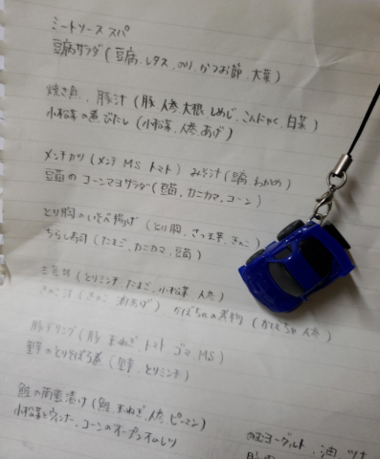 ミートソース スパ
豆腐サラダ (豆腐、レタス、のり、かつお節、大葉)
焼き魚、豚汁 (豚、人参、大根、しめじ、こんにゃく、白菜)
小松菜の煮びたし (小松菜、人参、あげ)
メンチカツ (メンチ MS トマト) みそ汁 (わかめ)
豆苗のコーンマヨサラダ (豆苗、カニカマ、コーン)
とり胸の揚げ (とり胸、さつま芋、きのこ)
ちらし寿司 (たまご、カニカマ、豆苗)
三色丼 (とりミンチ、たまご、小松菜、人参)
きのこ汁 (きのこ、あげ) かぼちゃの煮物 (かぼちゃ、人参)
(豚、玉ねぎ、トマト、ゴマ、MS)
里芋のとりそぼろ煮 (里芋、とりミンチ)
鮭の南蛮漬け (鮭、玉ねぎ、人参、ピーマン)
小松菜とウィンナー、コーンのオーブンオムレツ
のむヨーグルト、油 ツナ